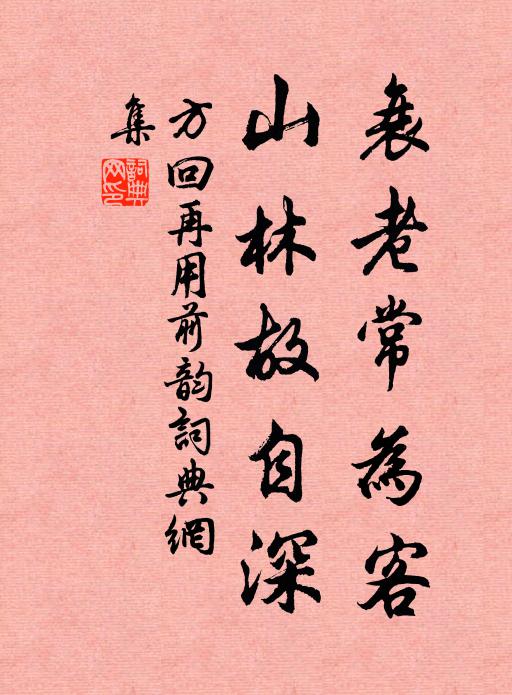 衰老常為客
山林故自深
方回再用前韵詞典網
集
詞典網印